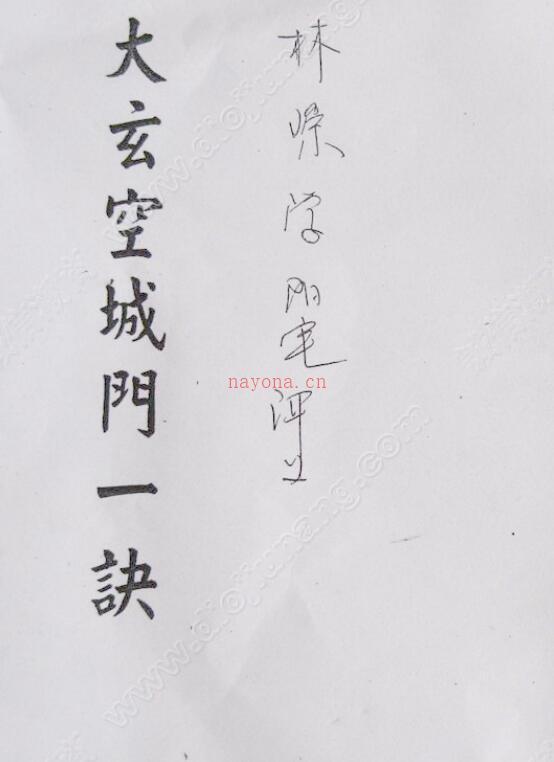 林学阳宅讲义
大玄空城門一訣
nayona.cn